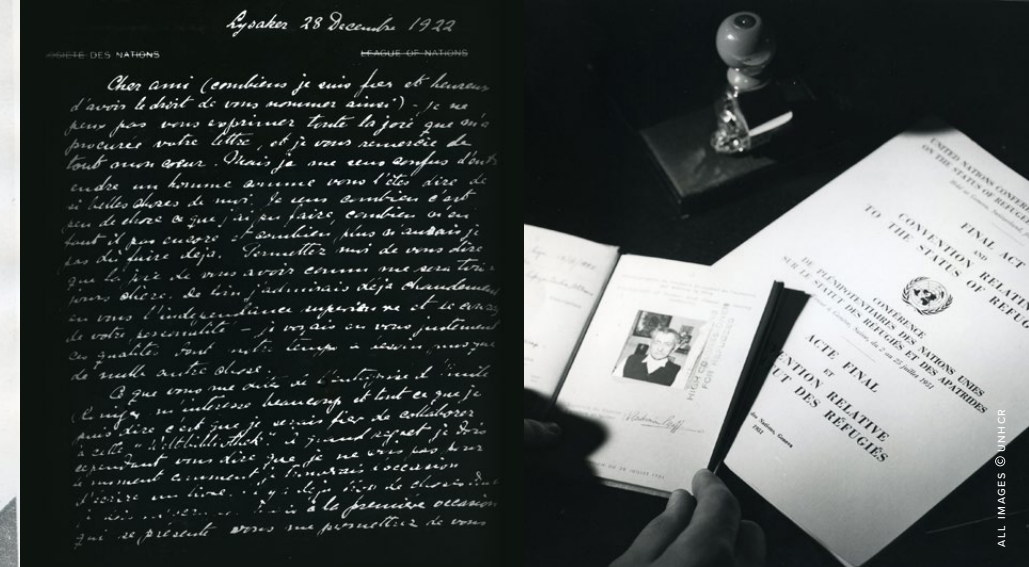 Lysaker 28 Decembre 1922
SOCIÉTÉ DES NATIONS
LEAGUE OF NATIONS
Cher ami (combiens je suis fier et heureux
d'avoir le droit de vous nommer ainsi) - je ne
peux pas vous exprimer toute la joie que m'a
procurée votre lettre, et je vous remercie de
tout mon coeur. Mais je me sens confus d'ent-
endre un homme comme vous l'êtes dire de
si belles choses de moi. Je sens combien c'est
peu de chose ce que j'ai pu faire, combien m'en
faut il pas encore et combien plus n'aurais je
pas dû faire déjà. Permettez moi de vous dire
que la joie de vous avoir connu me sera tou-
jours chère. De loin j'admirais déjà chaudement
en vous l'indépendance et le courage
de votre personalité - je voyais en vous justement
ces qualités dont notre temps a besoin plus que
de nulle autre chose.
Ce que vous me dites de l'entreprise d'Emile
m'interesse beaucoup et tout ce que je
puis dire c'est que je serais fier de collaborer
à cette "Weltbibliothek" à grand regret je dois
cependant vous dire que je ne vois pas pour
le moment comment je trouverais l'occasion
d'écrire un livre
à la première occasion
qui se présente vous me permettrez de vous
HIGH CO
FOR REFUGEES
UNITED NATIONS CONFERENCE
ON THE STATUS OF REFUGEES
FINAL ACT
AND
CONVENTION RELATING
TO THE STATUS OF REFUGEES
CONFÉRENCE
DE PLÉNIPOTENTIAIRES DES NATIONS UNIES
SUR LE STATUT DES RÉFUGIÉS ET DES APATRIDES
Genève, Suisse, du 2 au 25 juillet 1951
ACTE FINAL
ET
CONVENTION RELATIVE
STATUT DES RÉFUGIÉS
des Nations, Geneva
1951
ALL IMAGES © UNHCR